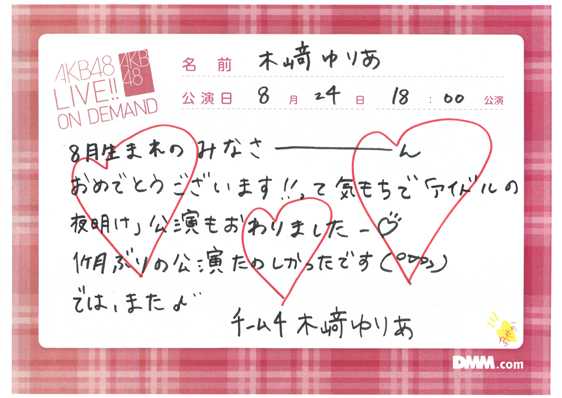 AKB48
LIVE!!
ON DEMAND
AKB
48
名前 木﨑ゆりあ
公演日 8月24日 18:00公演
8月生まれのみなさーーーーん
おめでとうございます!!って気もちで「アイドルの
夜明け」公演もおわりましたー♡
1ヶ月ぶりの公演たのしかったです
では、また♪
チーム4 木﨑ゆりあ
DMM.com